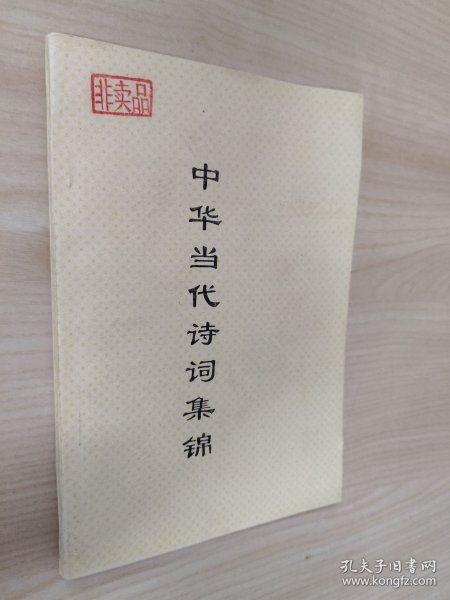 非卖品
中华当代诗词集锦
孔夫子旧书网
www.kongfz.com